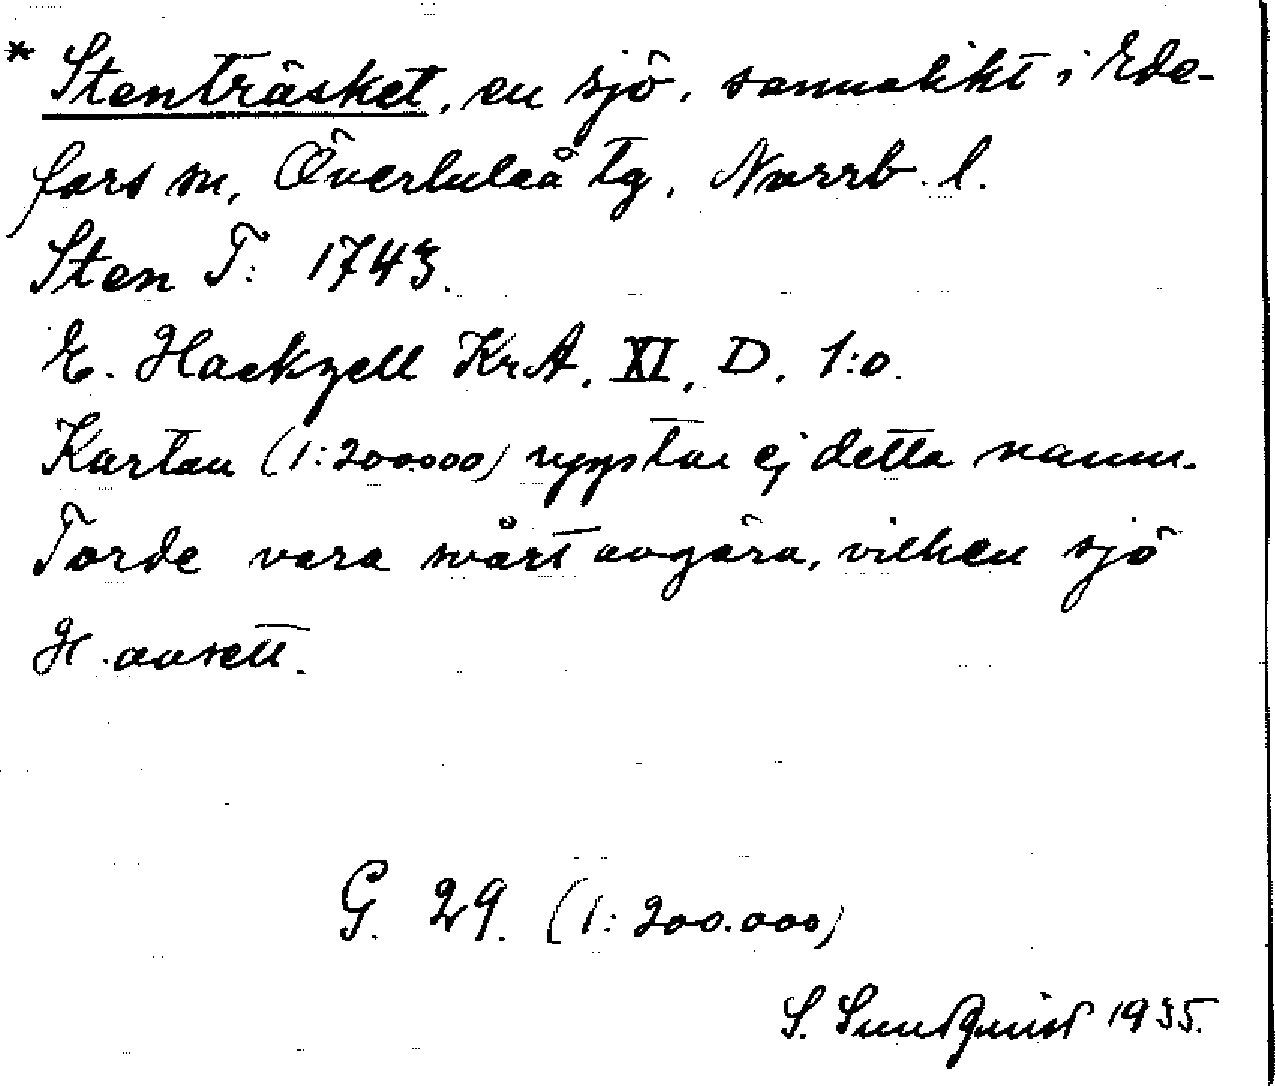 * Stenträsket, en sjö, sannolikt i Ede-
fors sn, Överluleå tg, Norrb. l.
Sten T: 1743.
E. Hackzell KrA, XI, D. 1:o.
Kartan (1:200.000) upptar ej detta namn.
Torde vara svårt avgöra, vilken sjö
H. avsett.
G. 29. (1:200.000)
S. Sundquist 1935.